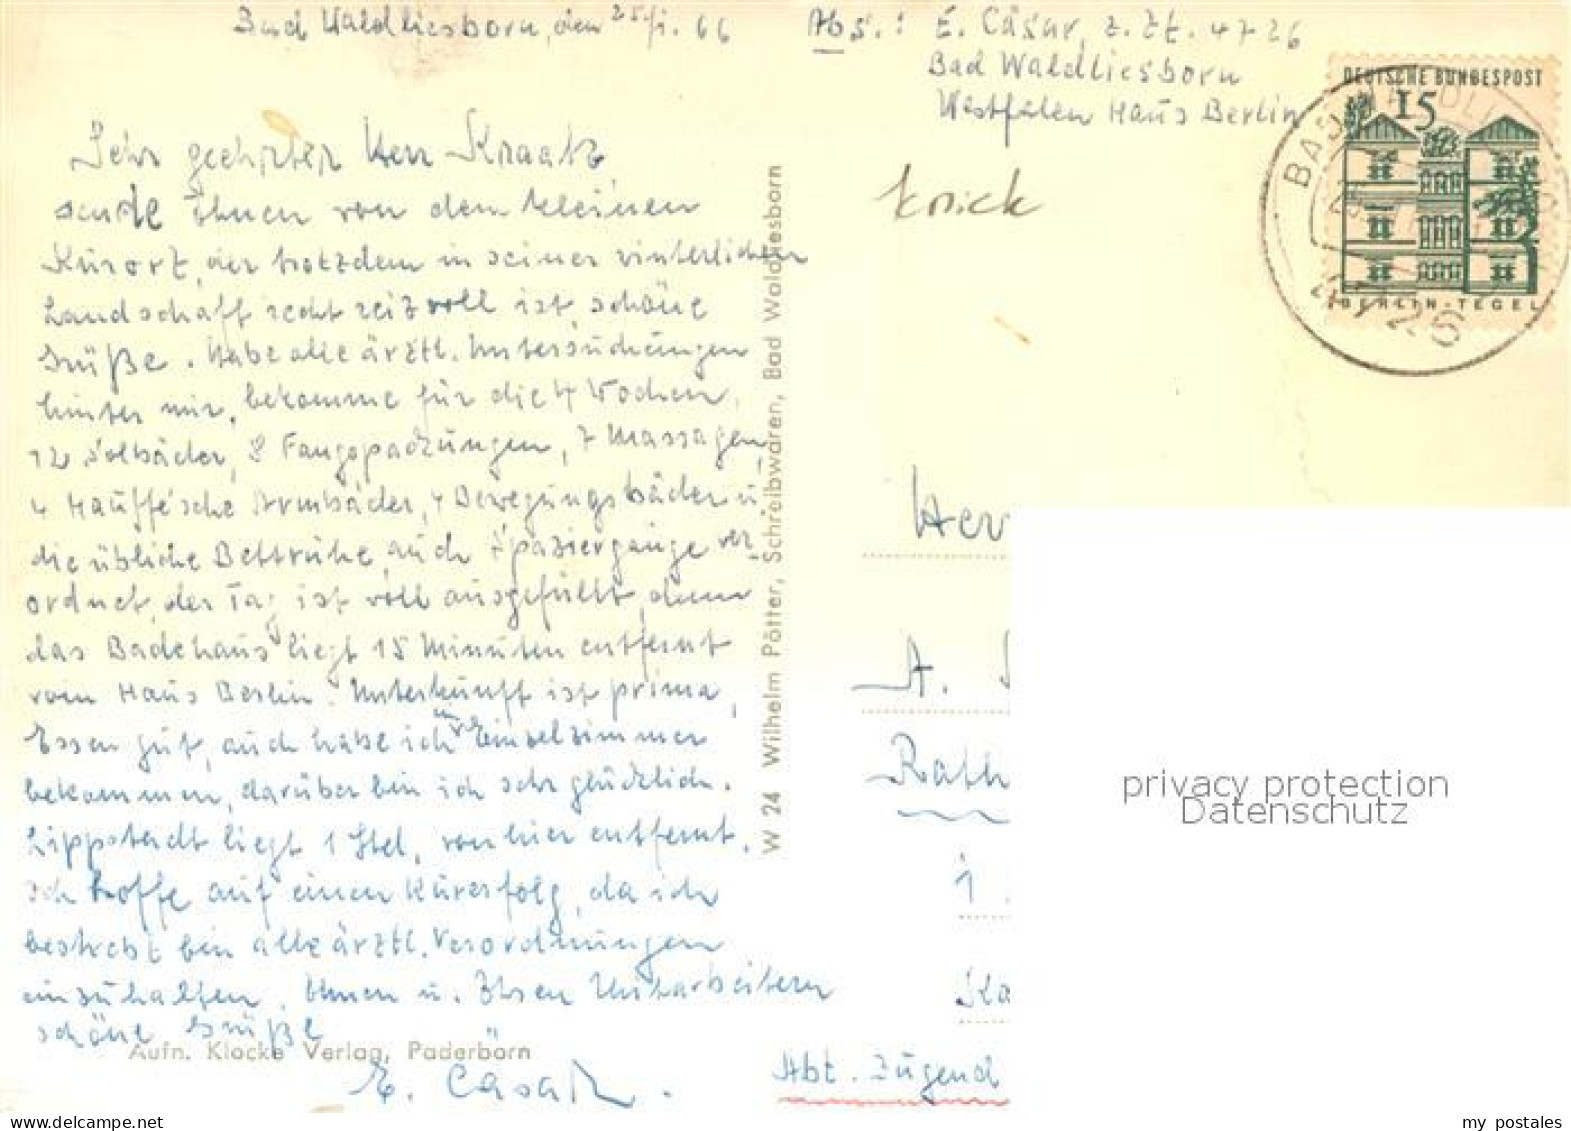 Bad Waldliesborn, den 25./1. 66
Abs.: E. Cäsar, z. Zt. 4726
Bad Waldliesborn
Westfalen Haus Berlin
DEUTSCHE BUNDESPOST
15
BERLIN-TEGEL
knick
Sehr geehrter Herr Kraatz,
sende Ihnen von dem kleinen
Kurort, der trotzdem in seiner winterlichen
Landschaft recht reizvoll ist schöne
Grüße. Habe alle ärztl. Untersuchungen
hinter mir, bekomme für die 4 Wochen,
12 Solbäder, 8 Fangopackungen, 7 Massagen,
4 Hauffe'sche Armbäder, 4 Bewegungsbäder u.
die übliche Bettruhe, auch Spaziergänge ver-
ordnet, der Tag ist voll ausgefüllt, denn
das Badehaus liegt 15 Minuten entfernt
vom Haus Berlin. Unterkunft ist prima,
Essen gut, auch habe ich Einzelzimmer
bekommen, darüber bin ich sehr glücklich.
Lippstadt liegt 1 Std. von hier entfernt.
Ich hoffe auf einen Kurerfolg, da ich
bestrebt bin alle ärztl. Verordnungen
einzuhalten. Ihnen u. Ihren Mitarbeitern
schöne Grüße
E. Cäsar.
Aufn. Klocke Verlag, Paderborn
W 24 Wilhelm Pötter, Schreibwaren, Bad Waldliesborn
Herr
A.
Rath
1
Ka
Abt. Jugend
privacy protection
Datenschutz
my postales